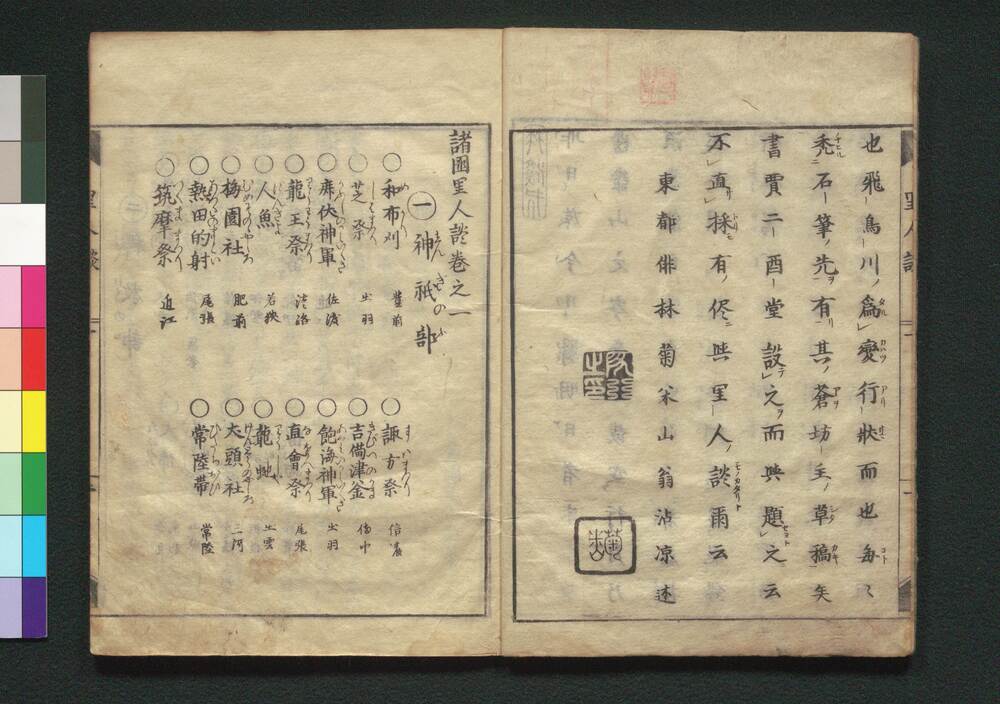 也飛鳥川ノ為變行狀而也毎々
禿石筆ノ先ヲ有其ノ蒼坊主ノ草稿矣
書賈二酉堂設之ヲ而與題之云
不直採有ノ侭與里人ノ談爾云
東都俳林菊米山翁沾凉述
諸國里人談巻之一
一 神祇の部
○和布刈 豊前
○芝祭 出羽
○麻伏神軍 佐渡
○龍王祭
○人魚 若狭
○梅園社 肥前
○熱田的射 尾張
○筑摩祭 近江
○諏方祭 信濃
○吉備津釜 備中
○飽海神軍 出羽
○直會祭 尾張
○龍虵 出雲
○大頭社 三河
○常陸帯 常陸
里人談